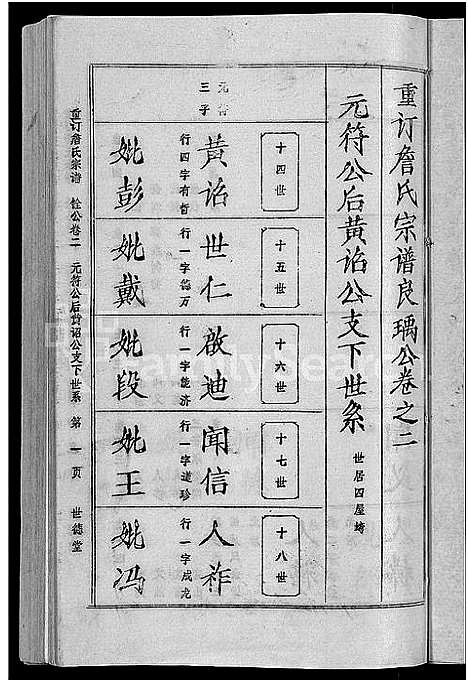 重订詹氏宗谱良瑀公卷之二
元符公后黄诏公支下世系
世居四屋塆
十四世
元符三子
黄诏
行四字有哲
妣彭
十五世
世仁
行一字德万
妣戴
十六世
啟迪
行一字能济
妣段
十七世
闻信
行一字道珍
妣王
十八世
人祚
行一字成龙
妣冯
重订詹氏宗谱 佺公卷二 元符公后黄诏公支下世系 第一页 世德堂